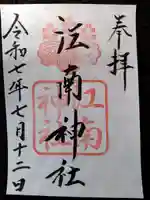 奉拝
江南神社
江南神社
令和七年七月十二日